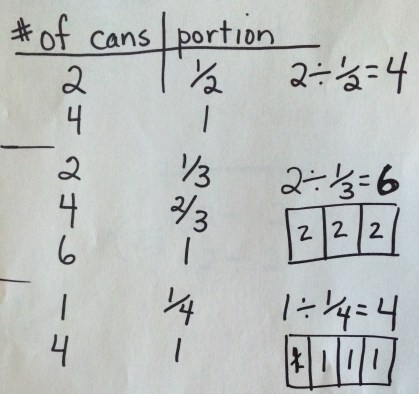 # of cans | portion
2 1/2 2÷1/2=4
4 1
2 1/3 2÷1/3=6
4 2/3 2 2 2
6 1
1 1/4 1÷1/4=4
4 1 1 1 1